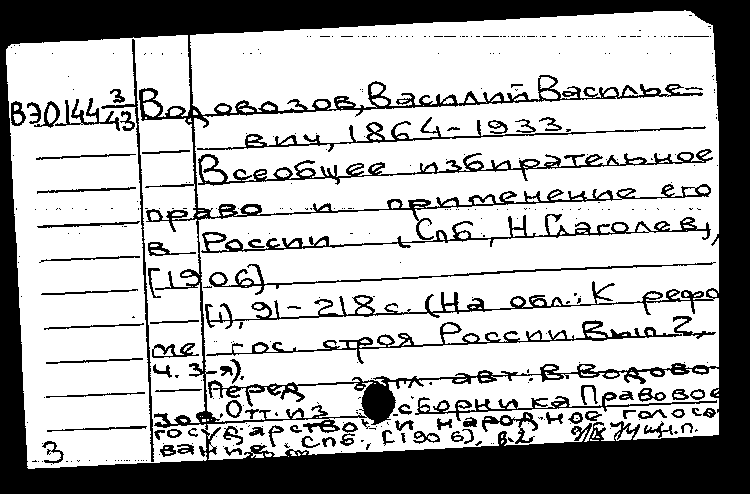 ВЭ0144 3/43 Водовозов, Василий Василье-
вич, 1864-1933.
Всеобщее избирательное
право и применение его
в России. Спб., Н. Глаголев,
[1906].
[1], 91-218 с. (На обл.: К рефо
ме гос. строя России. Вып. 2,
ч. 3-я).
Перед загл. авт.: В. Водово-
зов. Отт. из сборника Правовое
государство и народное голосо-
вание. Спб., [1906], в. 2
3